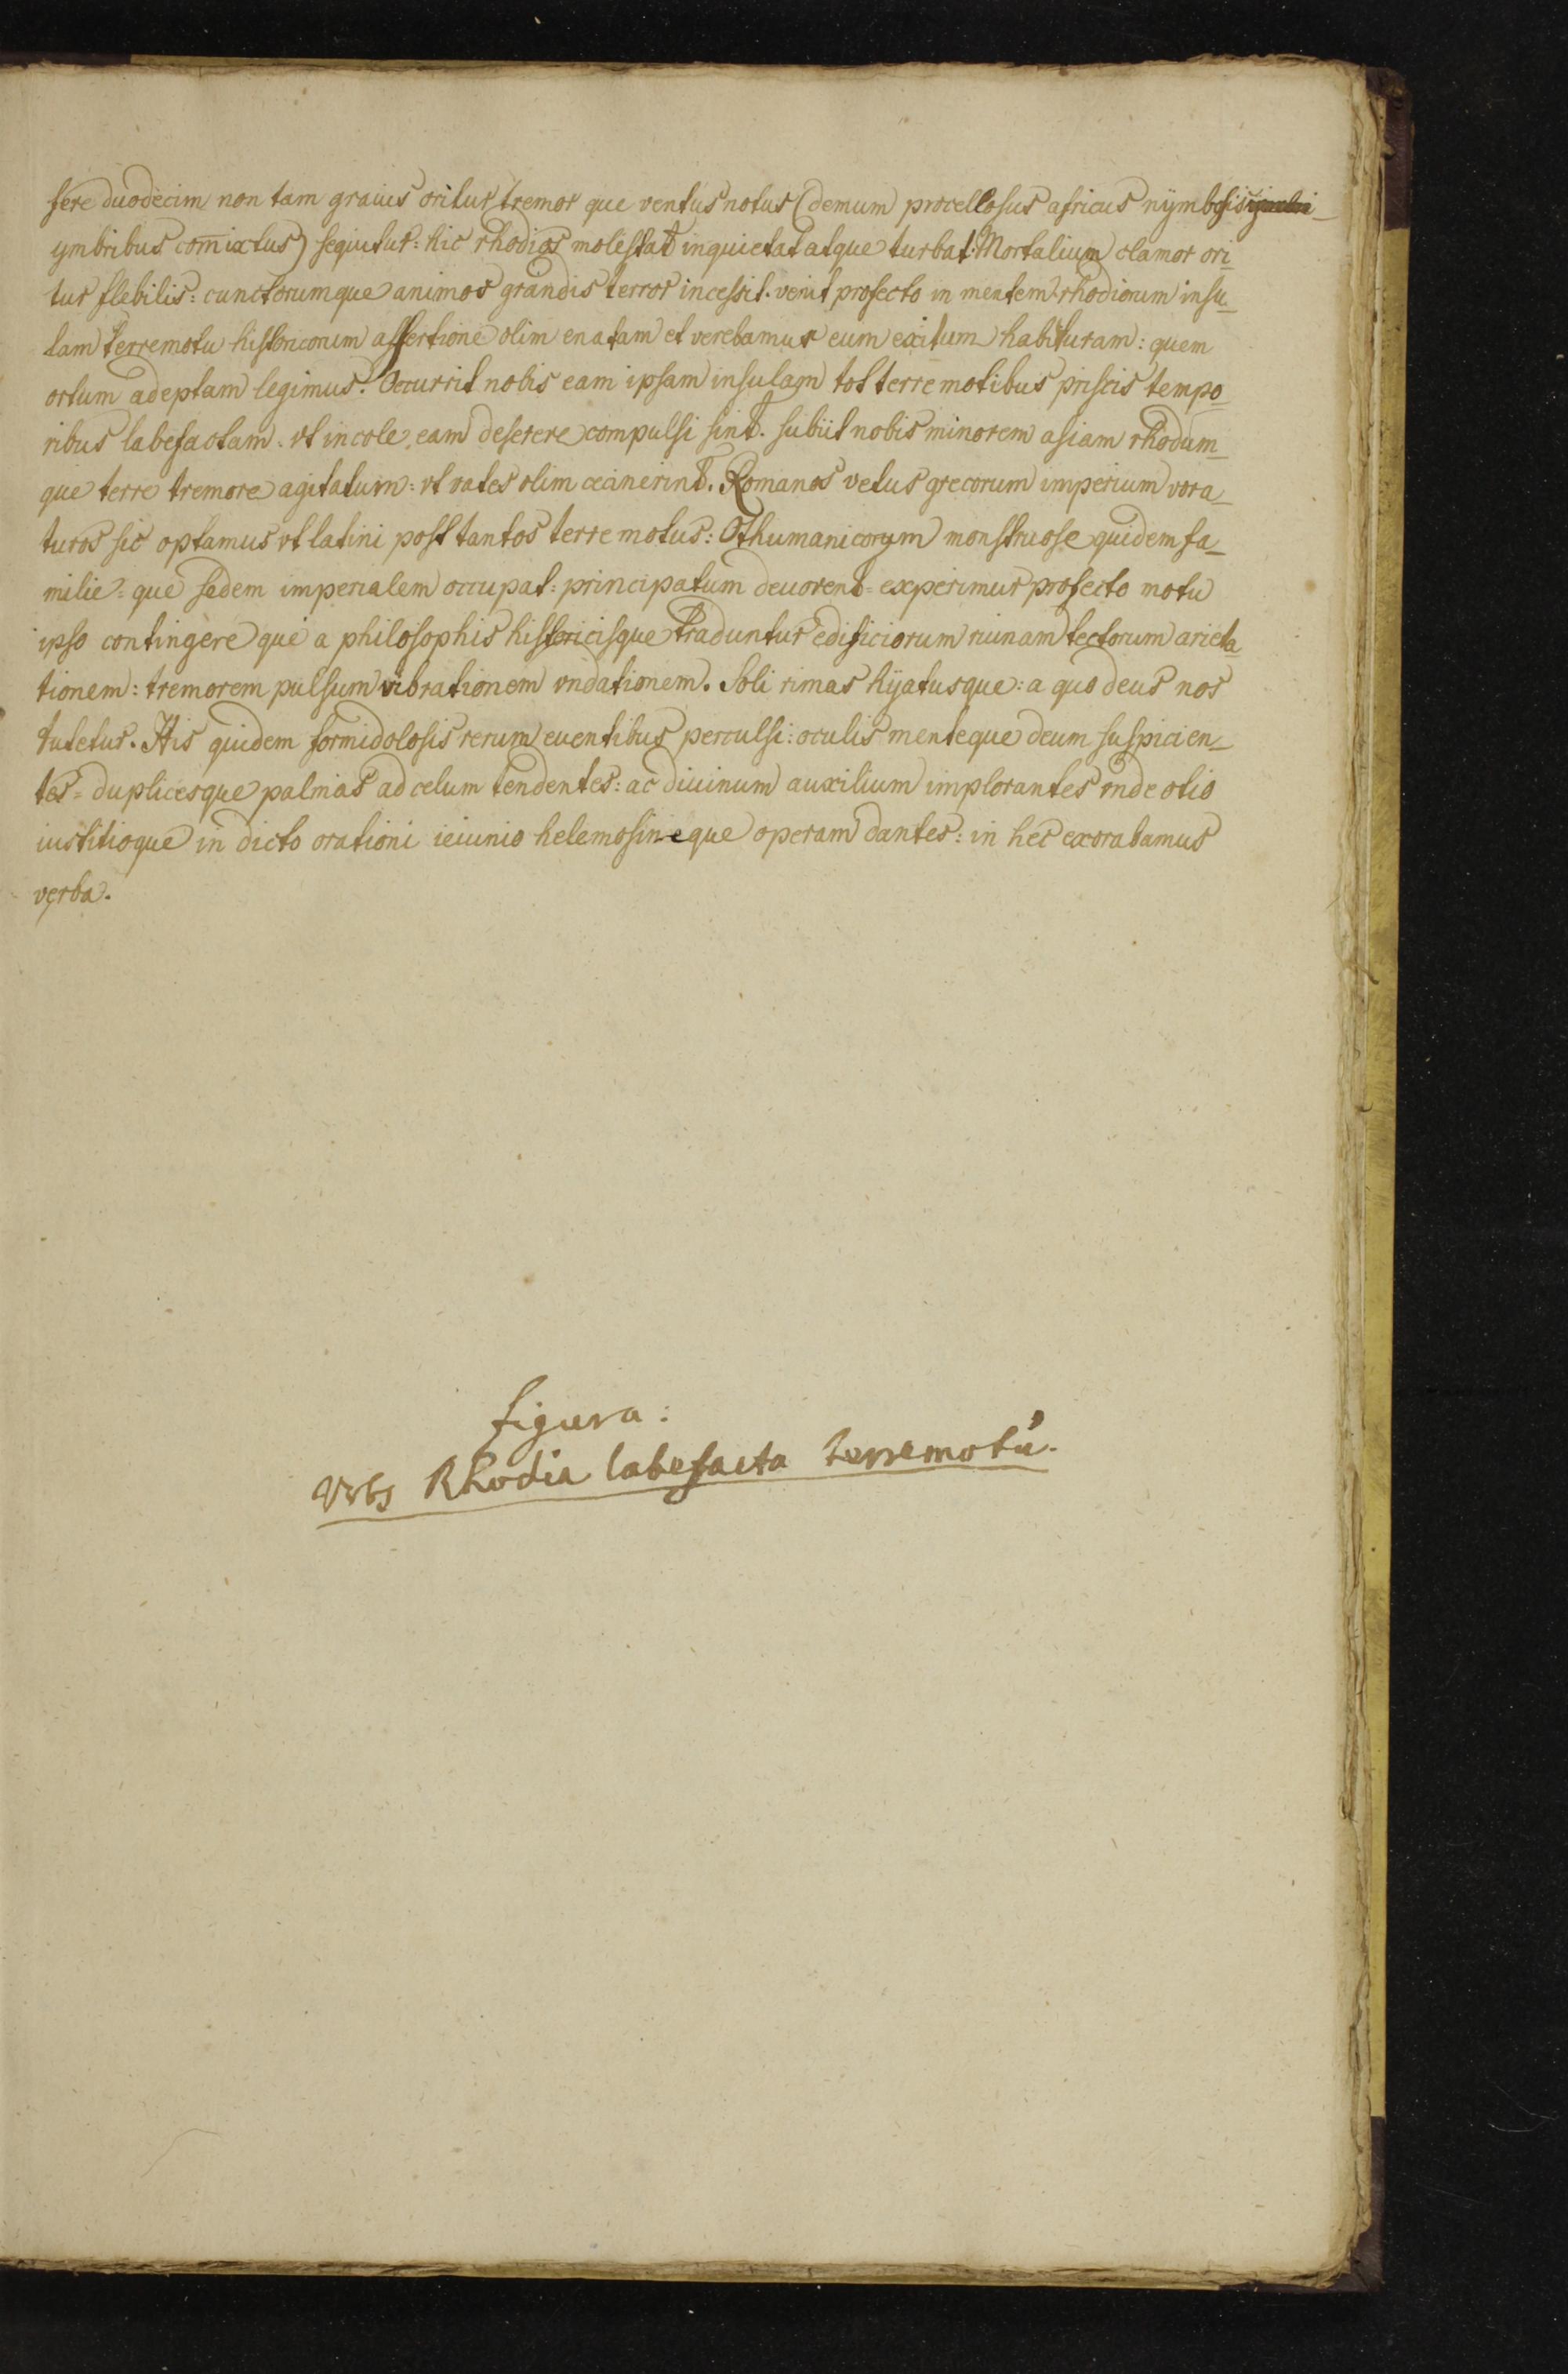 fere duodecim non tam grauis oritur tremor que ventus notus (demum procellosus africus nymbosis
ymbribus comixtus) seqiutur: hic rhodios molestat inquietat atque turbat. Mortalium clamor ori_
tur flebilis: cunctorumque animos grandis terror incessit. venit profecto in mentem rhodiorum insu_
lam terremotu historicorum assertione olim enatam et verebamur eum exitum habituram: quem
ortum adeptam legimus. Occurrit nobis eam ipsam insulam tot terremotibus priscis tempo_
ribus labefactam. vt incole eam deserere compulsi sint. subiit nobis minorem asiam rhodum_
que terre tremore agitatum: vt vates olim cecinerint. Romanos vetus grecorum imperium vora_
turos sic optamus vt latini post tantos terre motus: Othumanicorum monstruose quidem fa_
milie: que sedem imperialem occupat: principatum deuorent: experimur profecto motu
ipso contingere que a philosophis historicisque traduntur edificiorum ruinam tectorum arieta_
tionem: tremorem pulsum vibrationem vndationem. Soli rimas hyatusque: a quo deus nos
tutetur. His quidem formidolosis rerum euentibus perculsi: oculis menteque deum suspicien_
tes: duplicesque palmas ad celum tendentes: ac diuinum auxilium implorantes vnde otio
iustitioque in dicto orationi ieiunio helemosineque operam dantes: in hec exorabamus
verba.
figura:
Vrbs Rhodia labefacta terremotú.